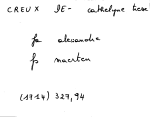 CREUX DE - cathelyne tese
fa alexandre
fs maerten
(1714) 327,94